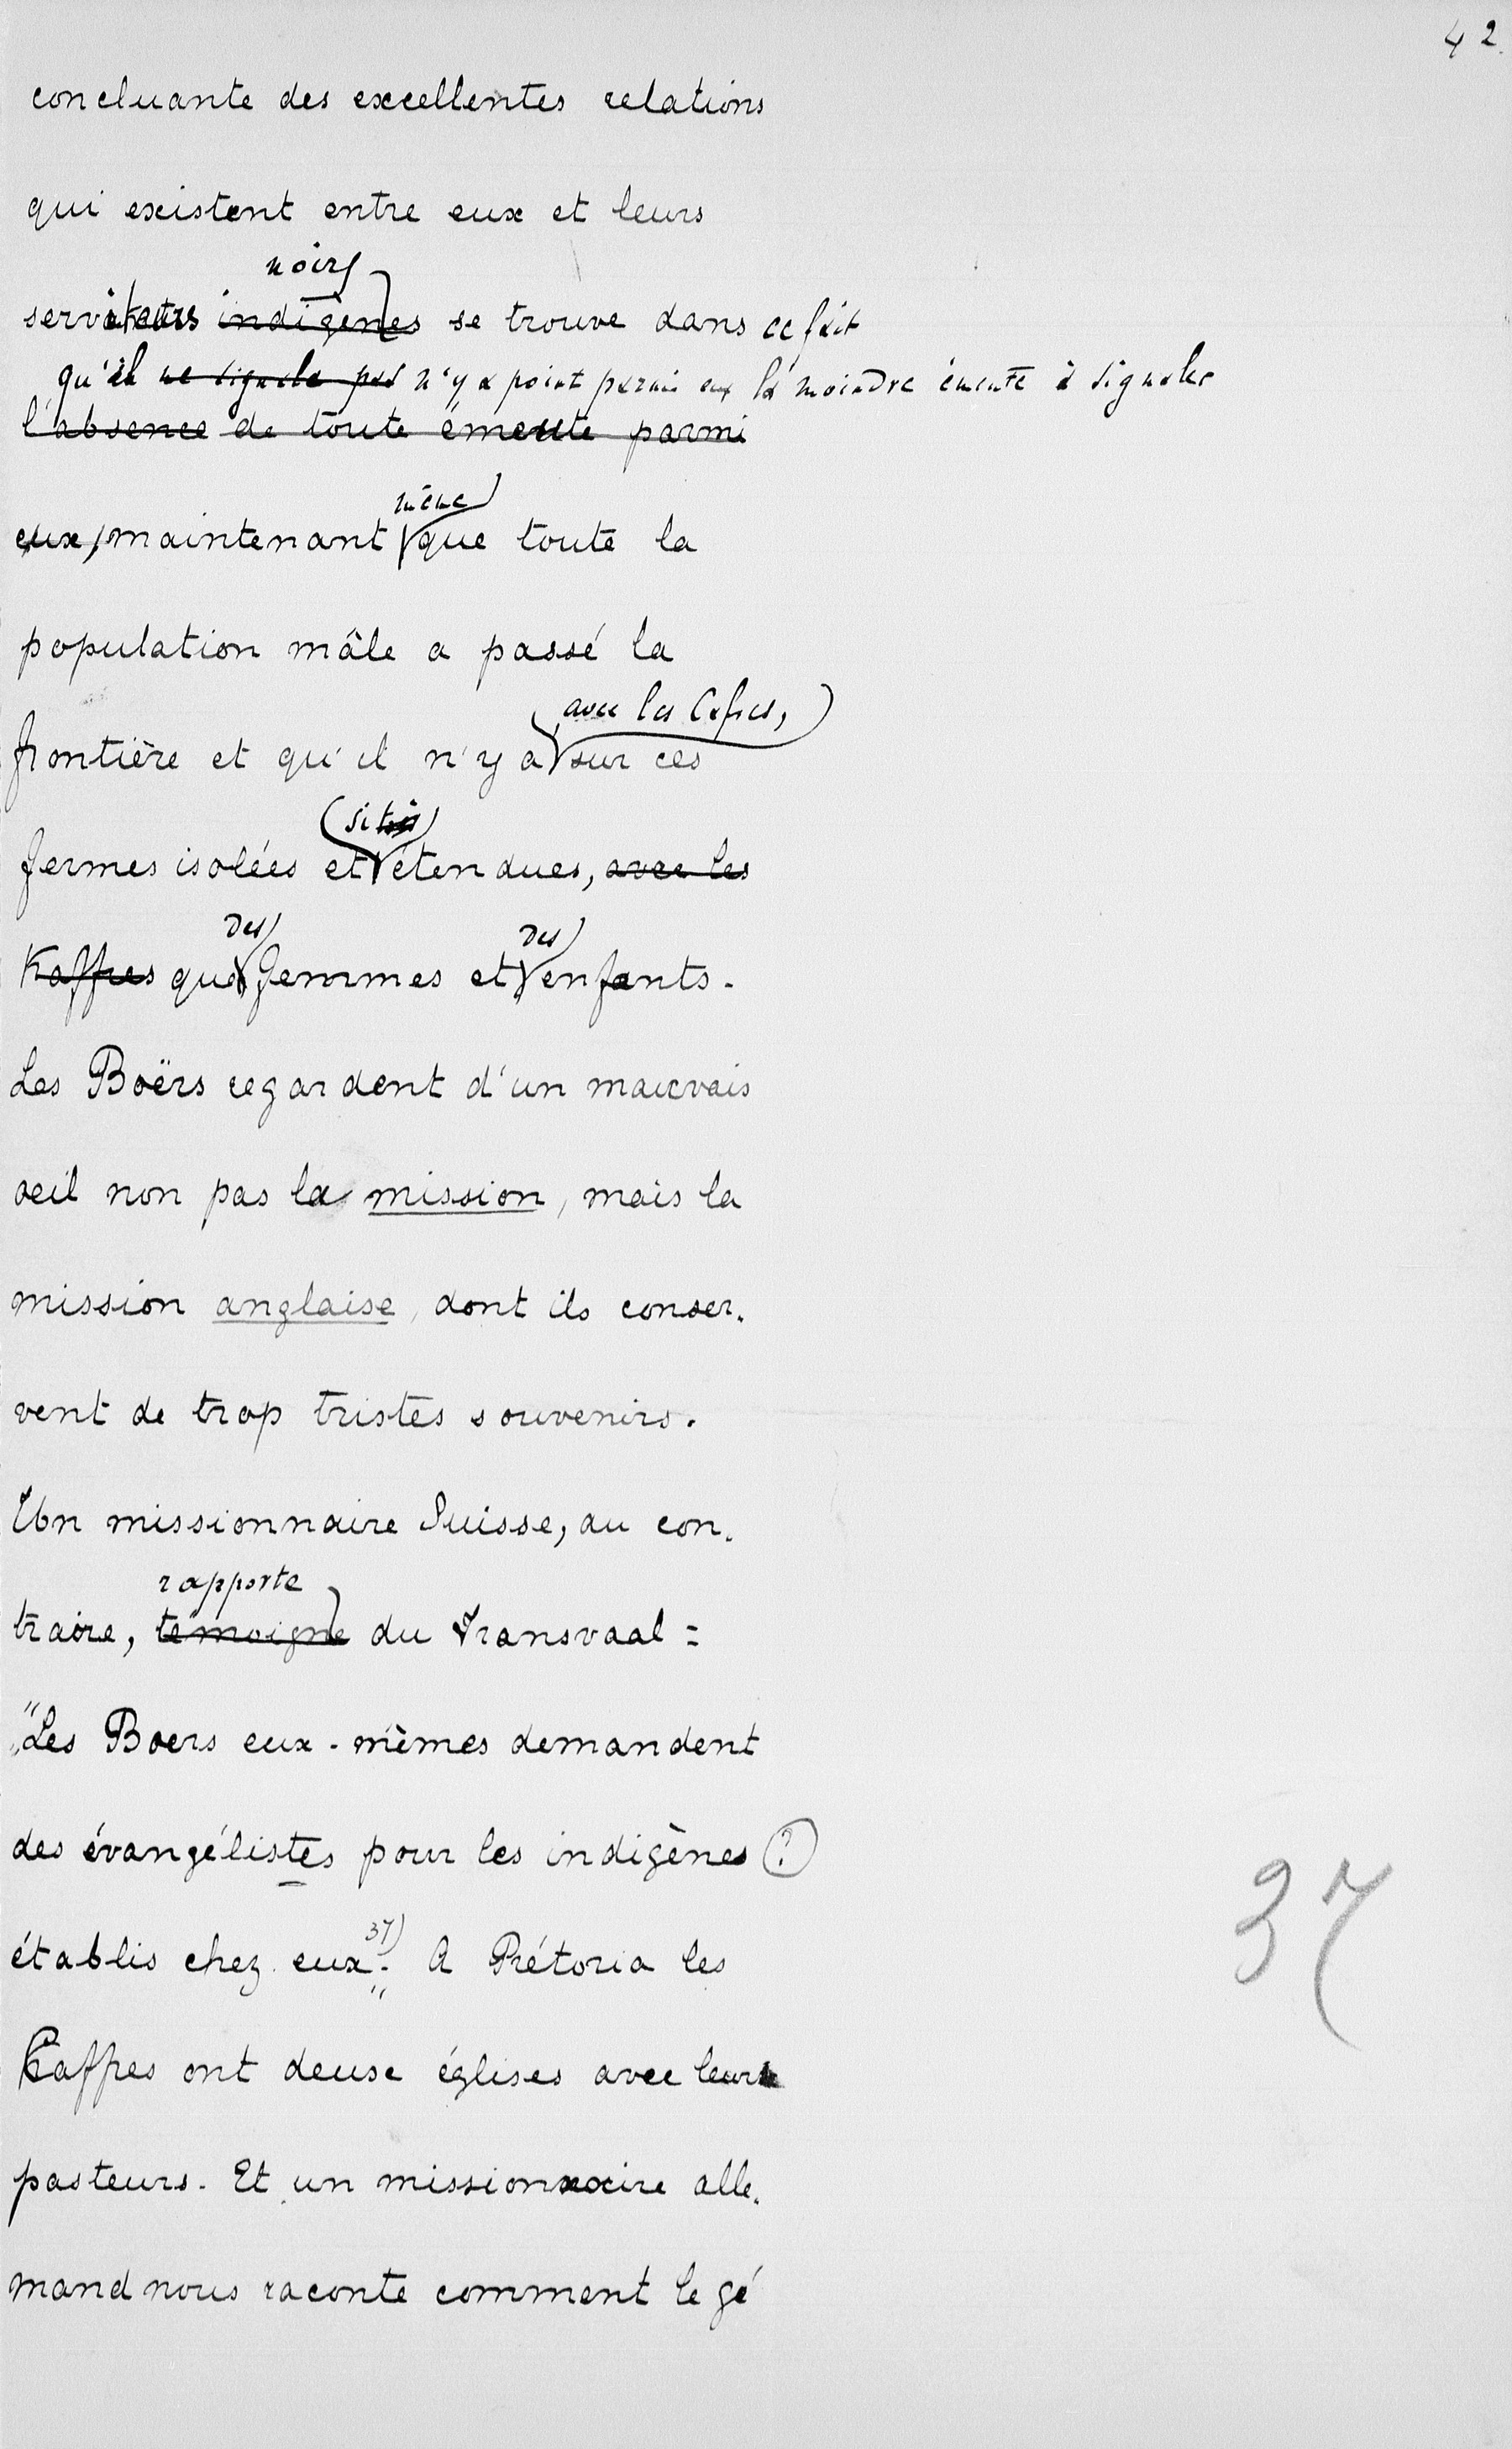 42.
concluante des excellentes relations
qui existent entre eux et leurs
noirs
serviteurs indigènes se trouve dans ce fait
qu'il ne signale pas n'y a point parmi eux la moindre émeute à signaler
l'absence de toute émeute parmi
même
eux, maintenant que toute la
population mâle a passé la
avec les Cafres,
frontière et qu'il n'y a sur ces
si
fermes isolées et étendues, avec les
des des
Kaffres que femmes et enfants.
Les Boërs regardent d'un mauvais
oeil non pas la mission, mais la
mission anglaise, dont ils conser-
vent de trop tristes souvenirs.
Un missionnaire Suisse, au con-
rapporte
traire, témoigne du Transvaal :
"Les Boers eux-mêmes demandent
des évangélistes pour les indigènes (?)
37)
établis chez eux". A Prétoria les
37
Caffres ont deux églises avec leurs
pasteurs. Et un missionnaire alle-
mand nous raconte comment le gé